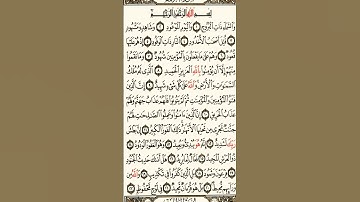 بِسْمِ اللَّهِ الرَّحْمَٰنِ الرَّحِيمِ
وَالسَّمَاءِ ذَاتِ الْبُرُوجِ ١ وَالْيَوْمِ الْمَوْعُودِ ٢ وَشَاهِدٍ وَمَشْهُودٍ ٣
قُتِلَ أَصْحَابُ الْأُخْدُودِ ٤ النَّارِ ذَاتِ الْوَقُودِ ٥ إِذْ هُمْ عَلَيْهَا
قُعُودٌ ٦ وَهُمْ عَلَىٰ مَا يَفْعَلُونَ بِالْمُؤْمِنِينَ شُهُودٌ ٧ وَمَا نَقَمُوا
مِنْهُمْ إِلَّا أَنْ يُؤْمِنُوا بِاللَّهِ الْعَزِيزِ الْحَمِيدِ ٨ الَّذِي لَهُ مُلْكُ
السَّمَاوَاتِ وَالْأَرْضِ وَاللَّهُ عَلَىٰ كُلِّ شَيْءٍ شَهِيدٌ ٩ إِنَّ الَّذِينَ
فَتَنُوا الْمُؤْمِنِينَ وَالْمُؤْمِنَاتِ ثُمَّ لَمْ يَتُوبُوا فَلَهُمْ عَذَابُ جَهَنَّمَ وَلَهُمْ
عَذَابُ الْحَرِيقِ ١٠ إِنَّ الَّذِينَ آمَنُوا وَعَمِلُوا الصَّالِحَاتِ لَهُمْ
جَنَّاتٌ تَجْرِي مِنْ تَحْتِهَا الْأَنْهَارُ ذَٰلِكَ الْفَوْزُ الْكَبِيرُ ١١ إِنَّ بَطْشَ
رَبِّكَ لَشَدِيدٌ ١٢ إِنَّهُ هُوَ يُبْدِئُ وَيُعِيدُ ١٣ وَهُوَ الْغَفُورُ الْوَدُودُ ١٤
ذُو الْعَرْشِ الْمَجِيدُ ١٥ فَعَّالٌ لِمَا يُرِيدُ ١٦ هَلْ أَتَاكَ حَدِيثُ الْجُنُودِ ١٧
فِرْعَوْنَ وَثَمُودَ ١٨ بَلِ الَّذِينَ كَفَرُوا فِي تَكْذِيبٍ ١٩ وَاللَّهُ مِنْ
وَرَائِهِمْ مُحِيطٌ ٢٠ بَلْ هُوَ قُرْآنٌ مَجِيدٌ ٢١ فِي لَوْحٍ مَحْفُوظٍ ٢٢